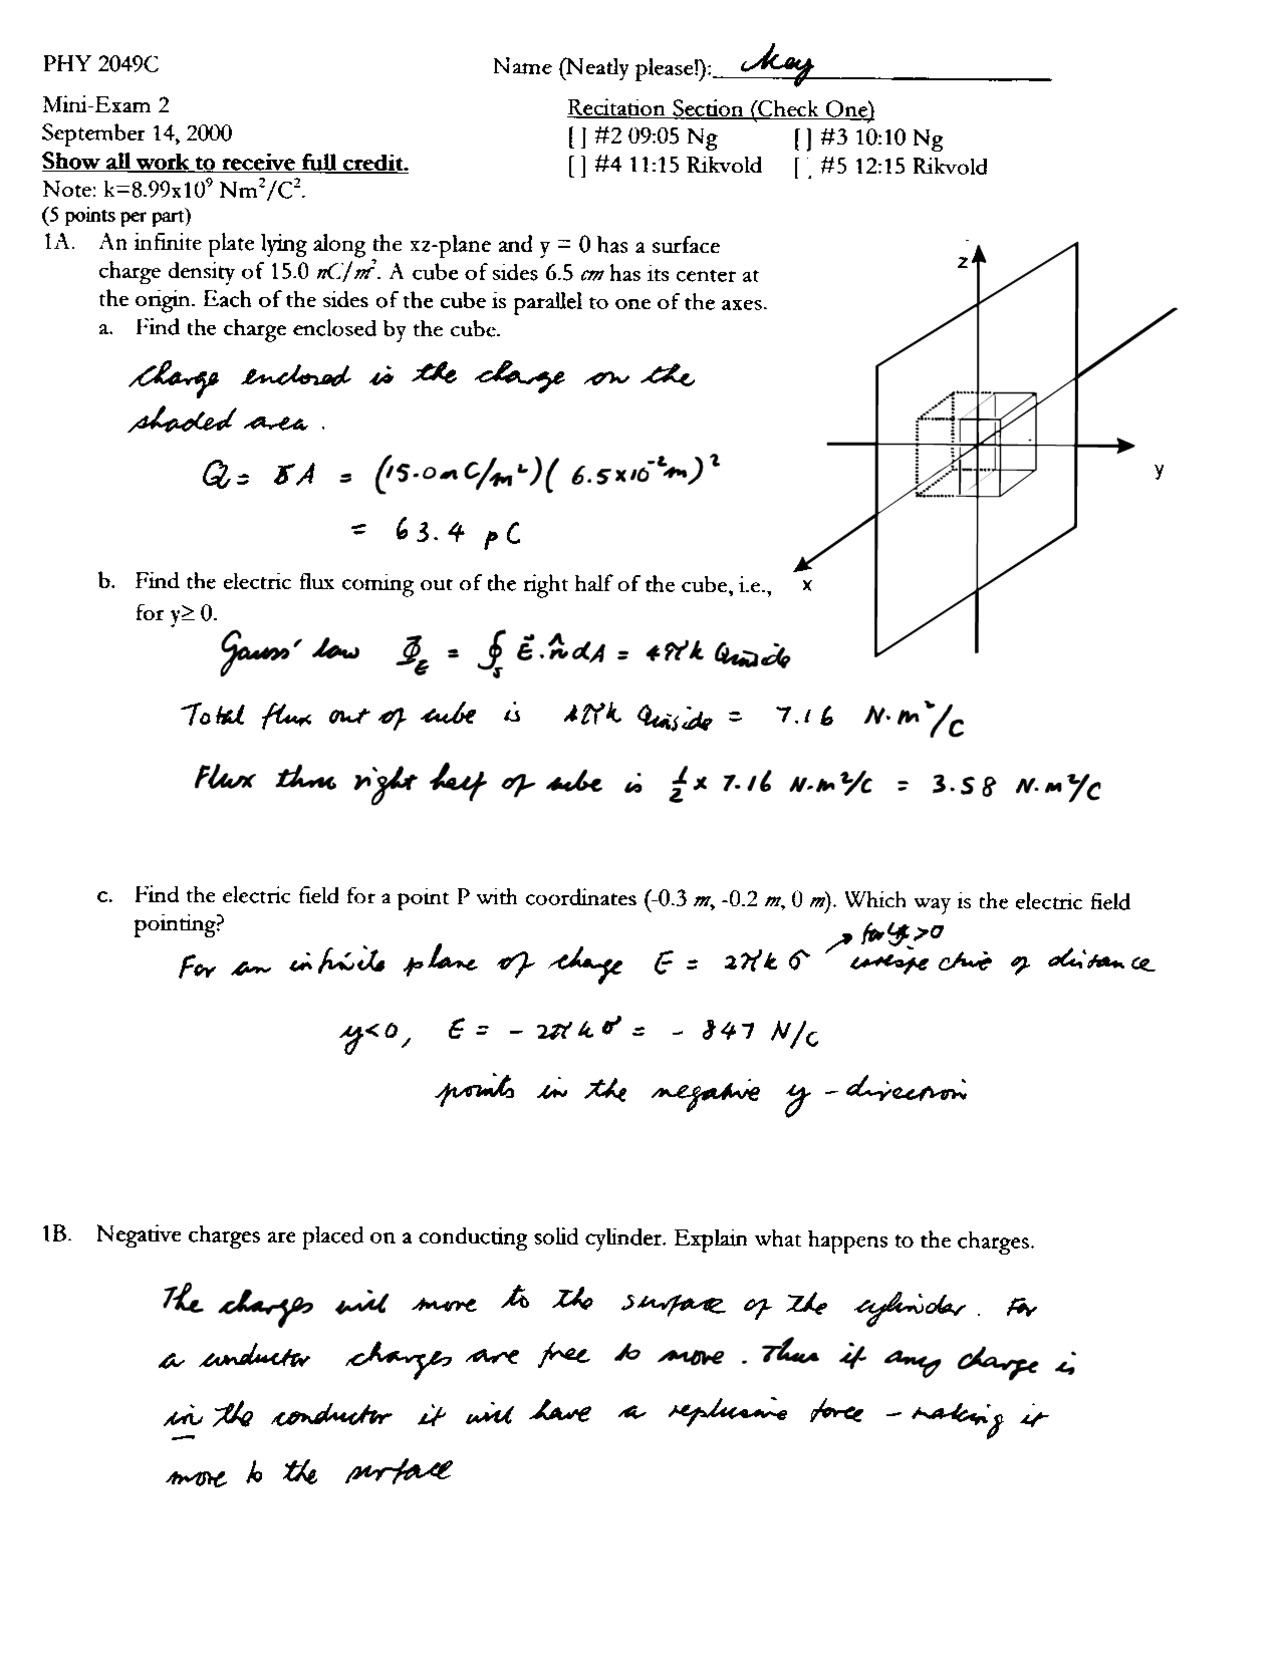 PHY 2049C
Name (Neatly please!): Key
Mini-Exam 2
September 14, 2000
Show all work to receive full credit.
Note: k=8.99x10⁹ Nm²/C².
(5 points per part)
Recitation Section (Check One)
[ ] #2 09:05 Ng [ ] #3 10:10 Ng
[ ] #4 11:15 Rikvold [ ] #5 12:15 Rikvold
1A. An infinite plate lying along the xz-plane and y = 0 has a surface
charge density of 15.0 nC/m². A cube of sides 6.5 cm has its center at
the origin. Each of the sides of the cube is parallel to one of the axes.
a. Find the charge enclosed by the cube.
Charge enclosed is the charge on the
shaded area.
Q = σA = (15.0nC/m²)( 6.5x10⁻²m)²
= 63.4 pC
z
y
x
b. Find the electric flux coming out of the right half of the cube, i.e.,
for y≥ 0.
Gauss' law Φ_E = ∮_S E⃗.n̂dA = 4πk Qinside
Total flux out of cube is 4πk Qinside = 7.16 N·m²/C
Flux thru right half of cube is ½ x 7.16 N·m²/C = 3.58 N·m²/C
c. Find the electric field for a point P with coordinates (-0.3 m, -0.2 m, 0 m). Which way is the electric field
pointing?
→ for y >0
For an infinite plane of charge E = 2πk σ irrespective of distance
y<0, E = - 2πkσ = - 847 N/C
points in the negative y - direction
1B. Negative charges are placed on a conducting solid cylinder. Explain what happens to the charges.
The charges will move to the surface of the cylinder. For
a conductor charges are free to move. Thus if any charge is
in the conductor it will have a replusive force - making it
move to the surface